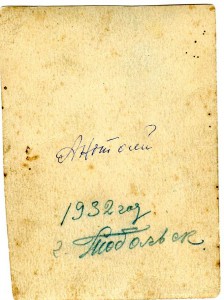 Анатолий
1932 год
г. Тобольск